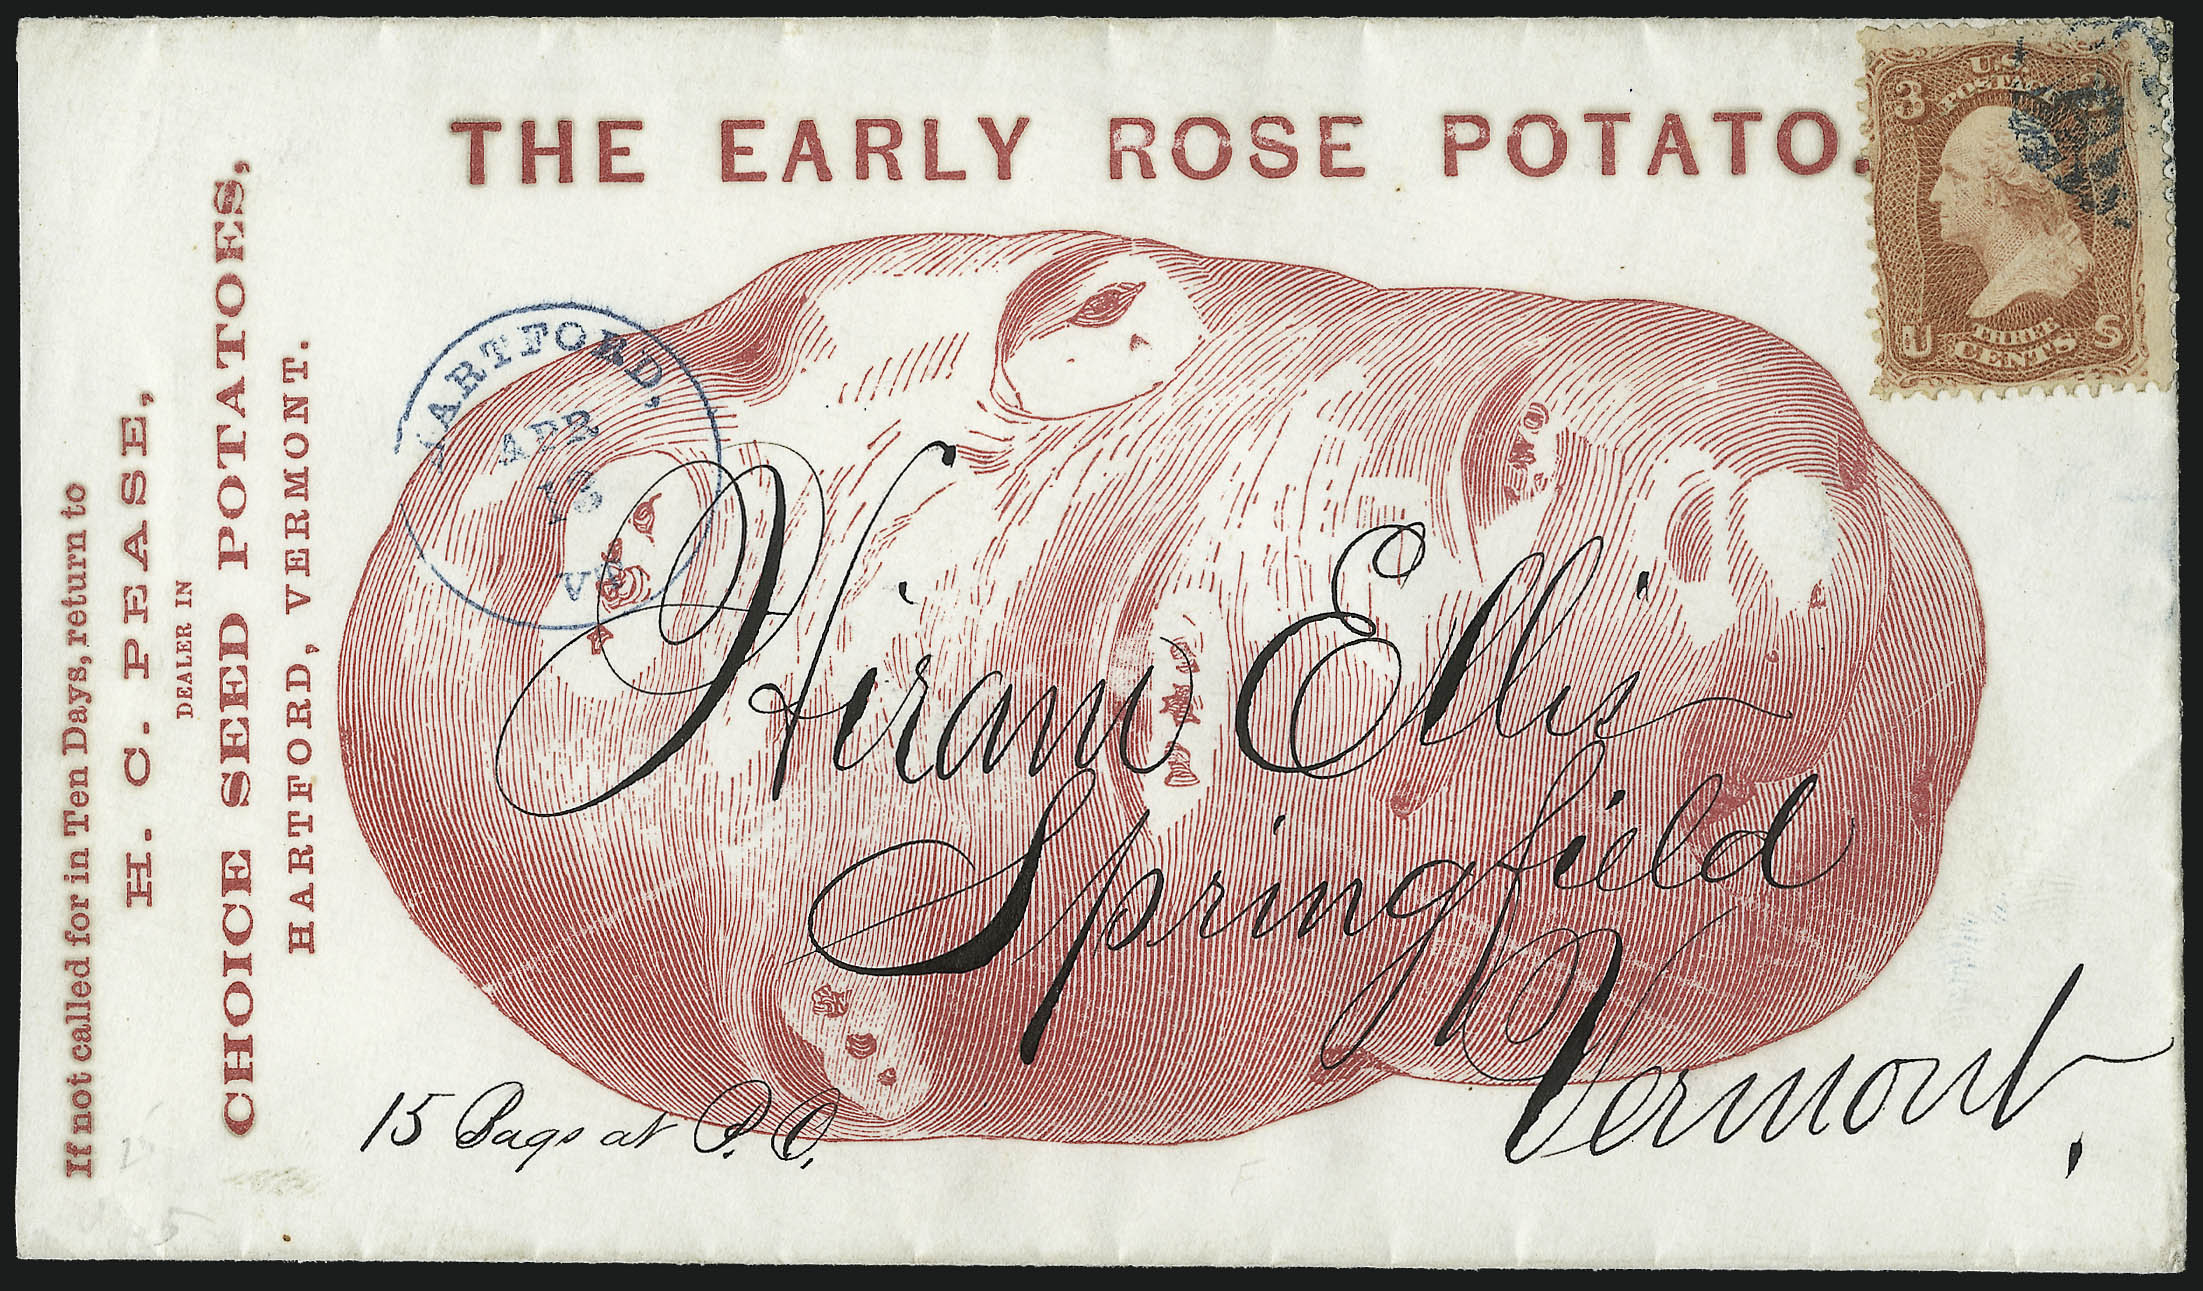 THE EARLY ROSE POTATO.
If not called for in Ten Days, return to
H. C. PEASE,
DEALER IN
CHOICE SEED POTATOES,
HARTFORD, VERMONT.
HARTFORD,
APR
13
VT
3 U.S. POSTAGE 3
U THREE CENTS S
Hiram Ellis
Springfield
Vermont.
15 Bags at P. O.